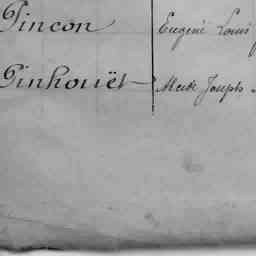 Pincon Eugène Louis
Pinhouët Joseph